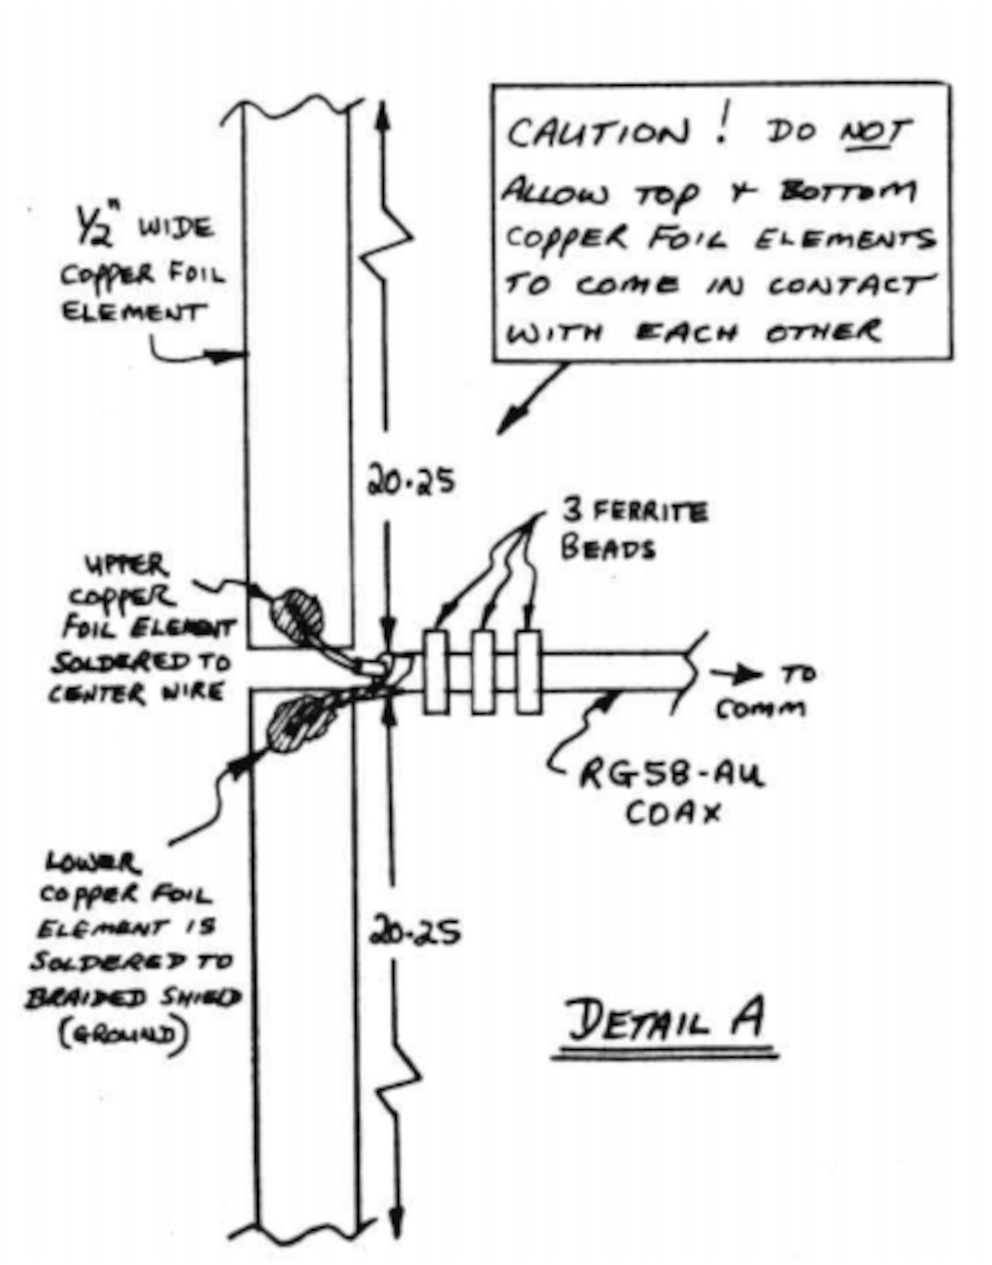 CAUTION! DO NOT
ALLOW TOP & BOTTOM
COPPER FOIL ELEMENTS
TO COME IN CONTACT
WITH EACH OTHER
1/2" WIDE
COPPER FOIL
ELEMENT
20.25
3 FERRITE
BEADS
UPPER
COPPER
FOIL ELEMENT
SOLDERED TO
CENTER WIRE
TO
COMM
RG58-AU
COAX
LOWER
COPPER FOIL
ELEMENT IS
SOLDERED TO
BRAIDED SHIELD
(GROUND)
20.25
DETAIL A